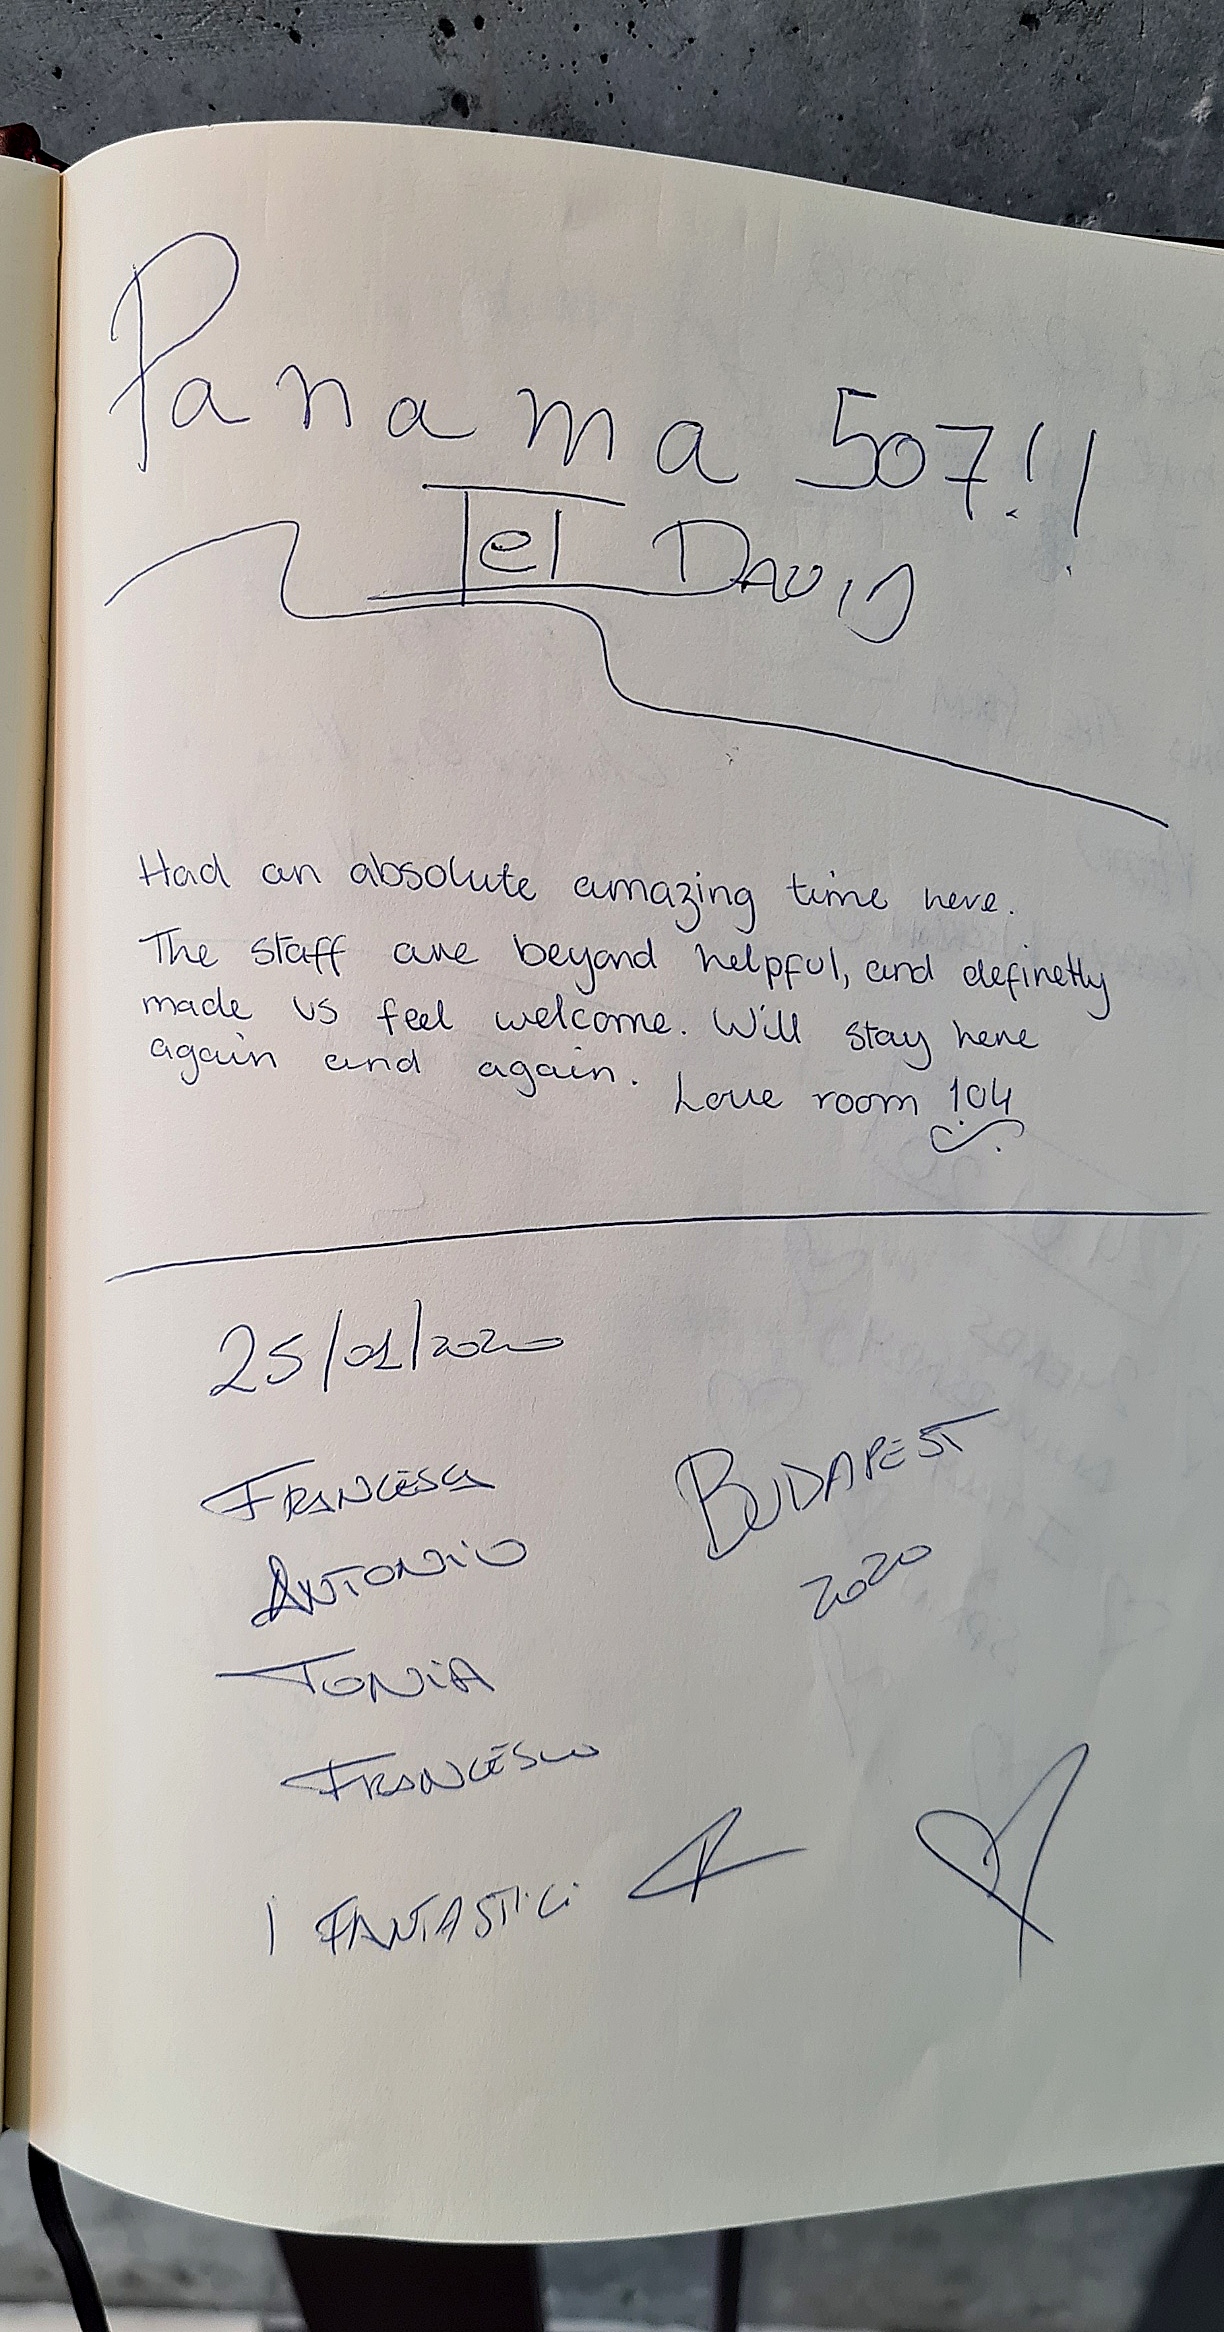 Panama 507!!
Tel DAVID
Had an absolute amazing time here.
The staff are beyond helpful, and definetly
made us feel welcome. Will stay here
again and again.
Love room 104
25/01/2020
FRANCESCA
ANTONIO
TONiA
FRANCESCO
BUDAPEST
2020
I FANTASTICi 4